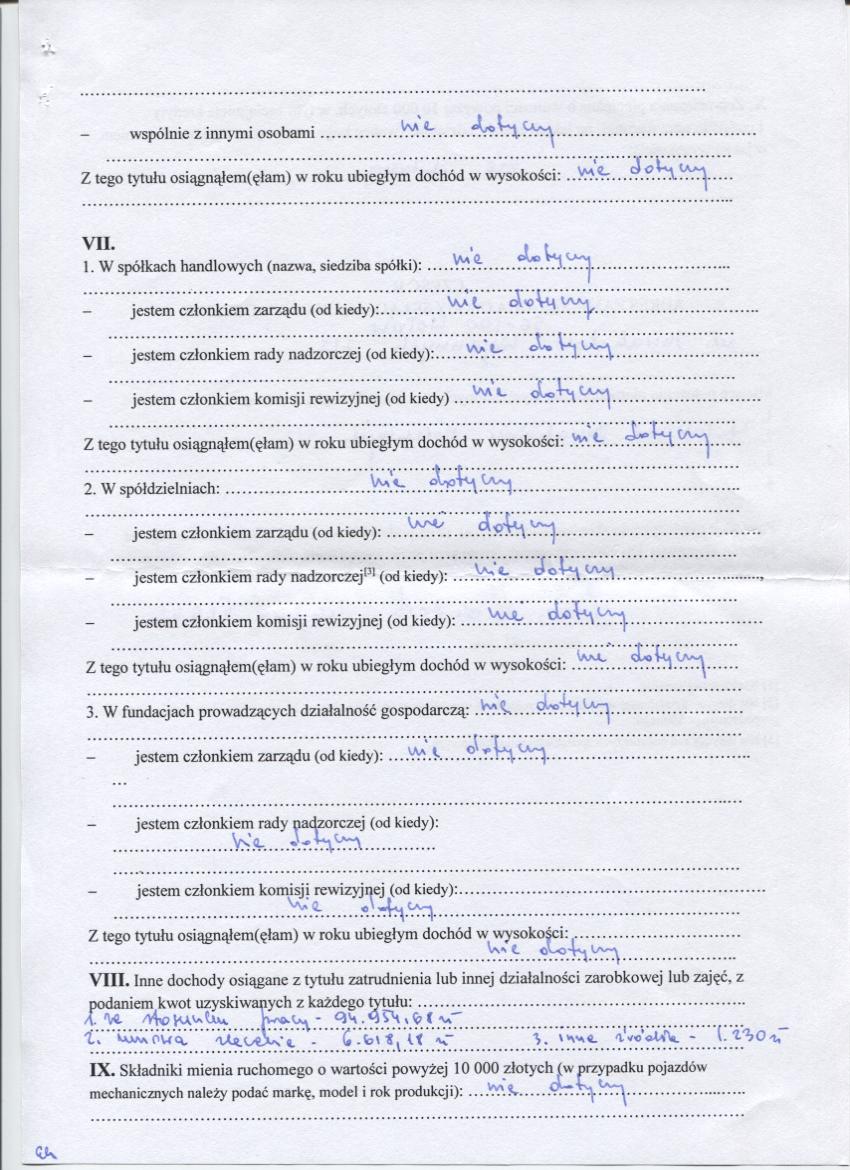 – wspólnie z innymi osobami nie dotyczy
Z tego tytułu osiągnąłem(ęłam) w roku ubiegłym dochód w wysokości: nie dotyczy
VII.
1. W spółkach handlowych (nazwa, siedziba spółki): nie dotyczy
– jestem członkiem zarządu (od kiedy): nie dotyczy
– jestem członkiem rady nadzorczej (od kiedy): nie dotyczy
– jestem członkiem komisji rewizyjnej (od kiedy) nie dotyczy
Z tego tytułu osiągnąłem(ęłam) w roku ubiegłym dochód w wysokości: nie dotyczy
2. W spółdzielniach: nie dotyczy
– jestem członkiem zarządu (od kiedy): nie dotyczy
– jestem członkiem rady nadzorczej[3] (od kiedy): nie dotyczy
– jestem członkiem komisji rewizyjnej (od kiedy): nie dotyczy
Z tego tytułu osiągnąłem(ęłam) w roku ubiegłym dochód w wysokości: nie dotyczy
3. W fundacjach prowadzących działalność gospodarczą: nie dotyczy
– jestem członkiem zarządu (od kiedy): nie dotyczy
…
– jestem członkiem rady nadzorczej (od kiedy):
nie dotyczy
– jestem członkiem komisji rewizyjnej (od kiedy):
nie dotyczy
Z tego tytułu osiągnąłem(ęłam) w roku ubiegłym dochód w wysokości:
nie dotyczy
VIII. Inne dochody osiągane z tytułu zatrudnienia lub innej działalności zarobkowej lub zajęć, z
podaniem kwot uzyskiwanych z każdego tytułu:
1. ze stosunku pracy - 94.954,68 zł
2. umowa zlecenie - 6.618,18 zł 3. inne źródła - 1.230 zł
IX. Składniki mienia ruchomego o wartości powyżej 10 000 złotych (w przypadku pojazdów
mechanicznych należy podać markę, model i rok produkcji): nie dotyczy